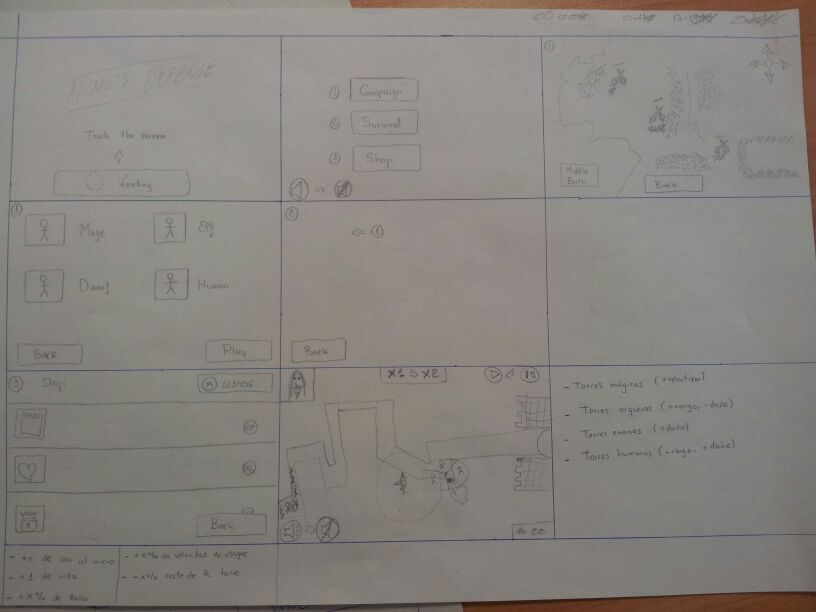 KING'S DEFENSE
Touch the screen
Loading
① Campaign
② Survival
③ Shop
①
Middle
Earth
Back
①
Mage
Elf
Dwarf
Human
Back
Play
②
⇐ ①
Back
③ Shop
123456
Back
X1 ⇒ X2
- Torres mágicas (+relentizar)
- Torres arqueras (+rango, -daño)
- Torres enanas (+daño)
- Torres humanas (-rango, +daño)
- +x de oro al inicio
- +1 de vida
- +x% de daño
- +x% de velocidad de ataque
- -x% coste de la torre